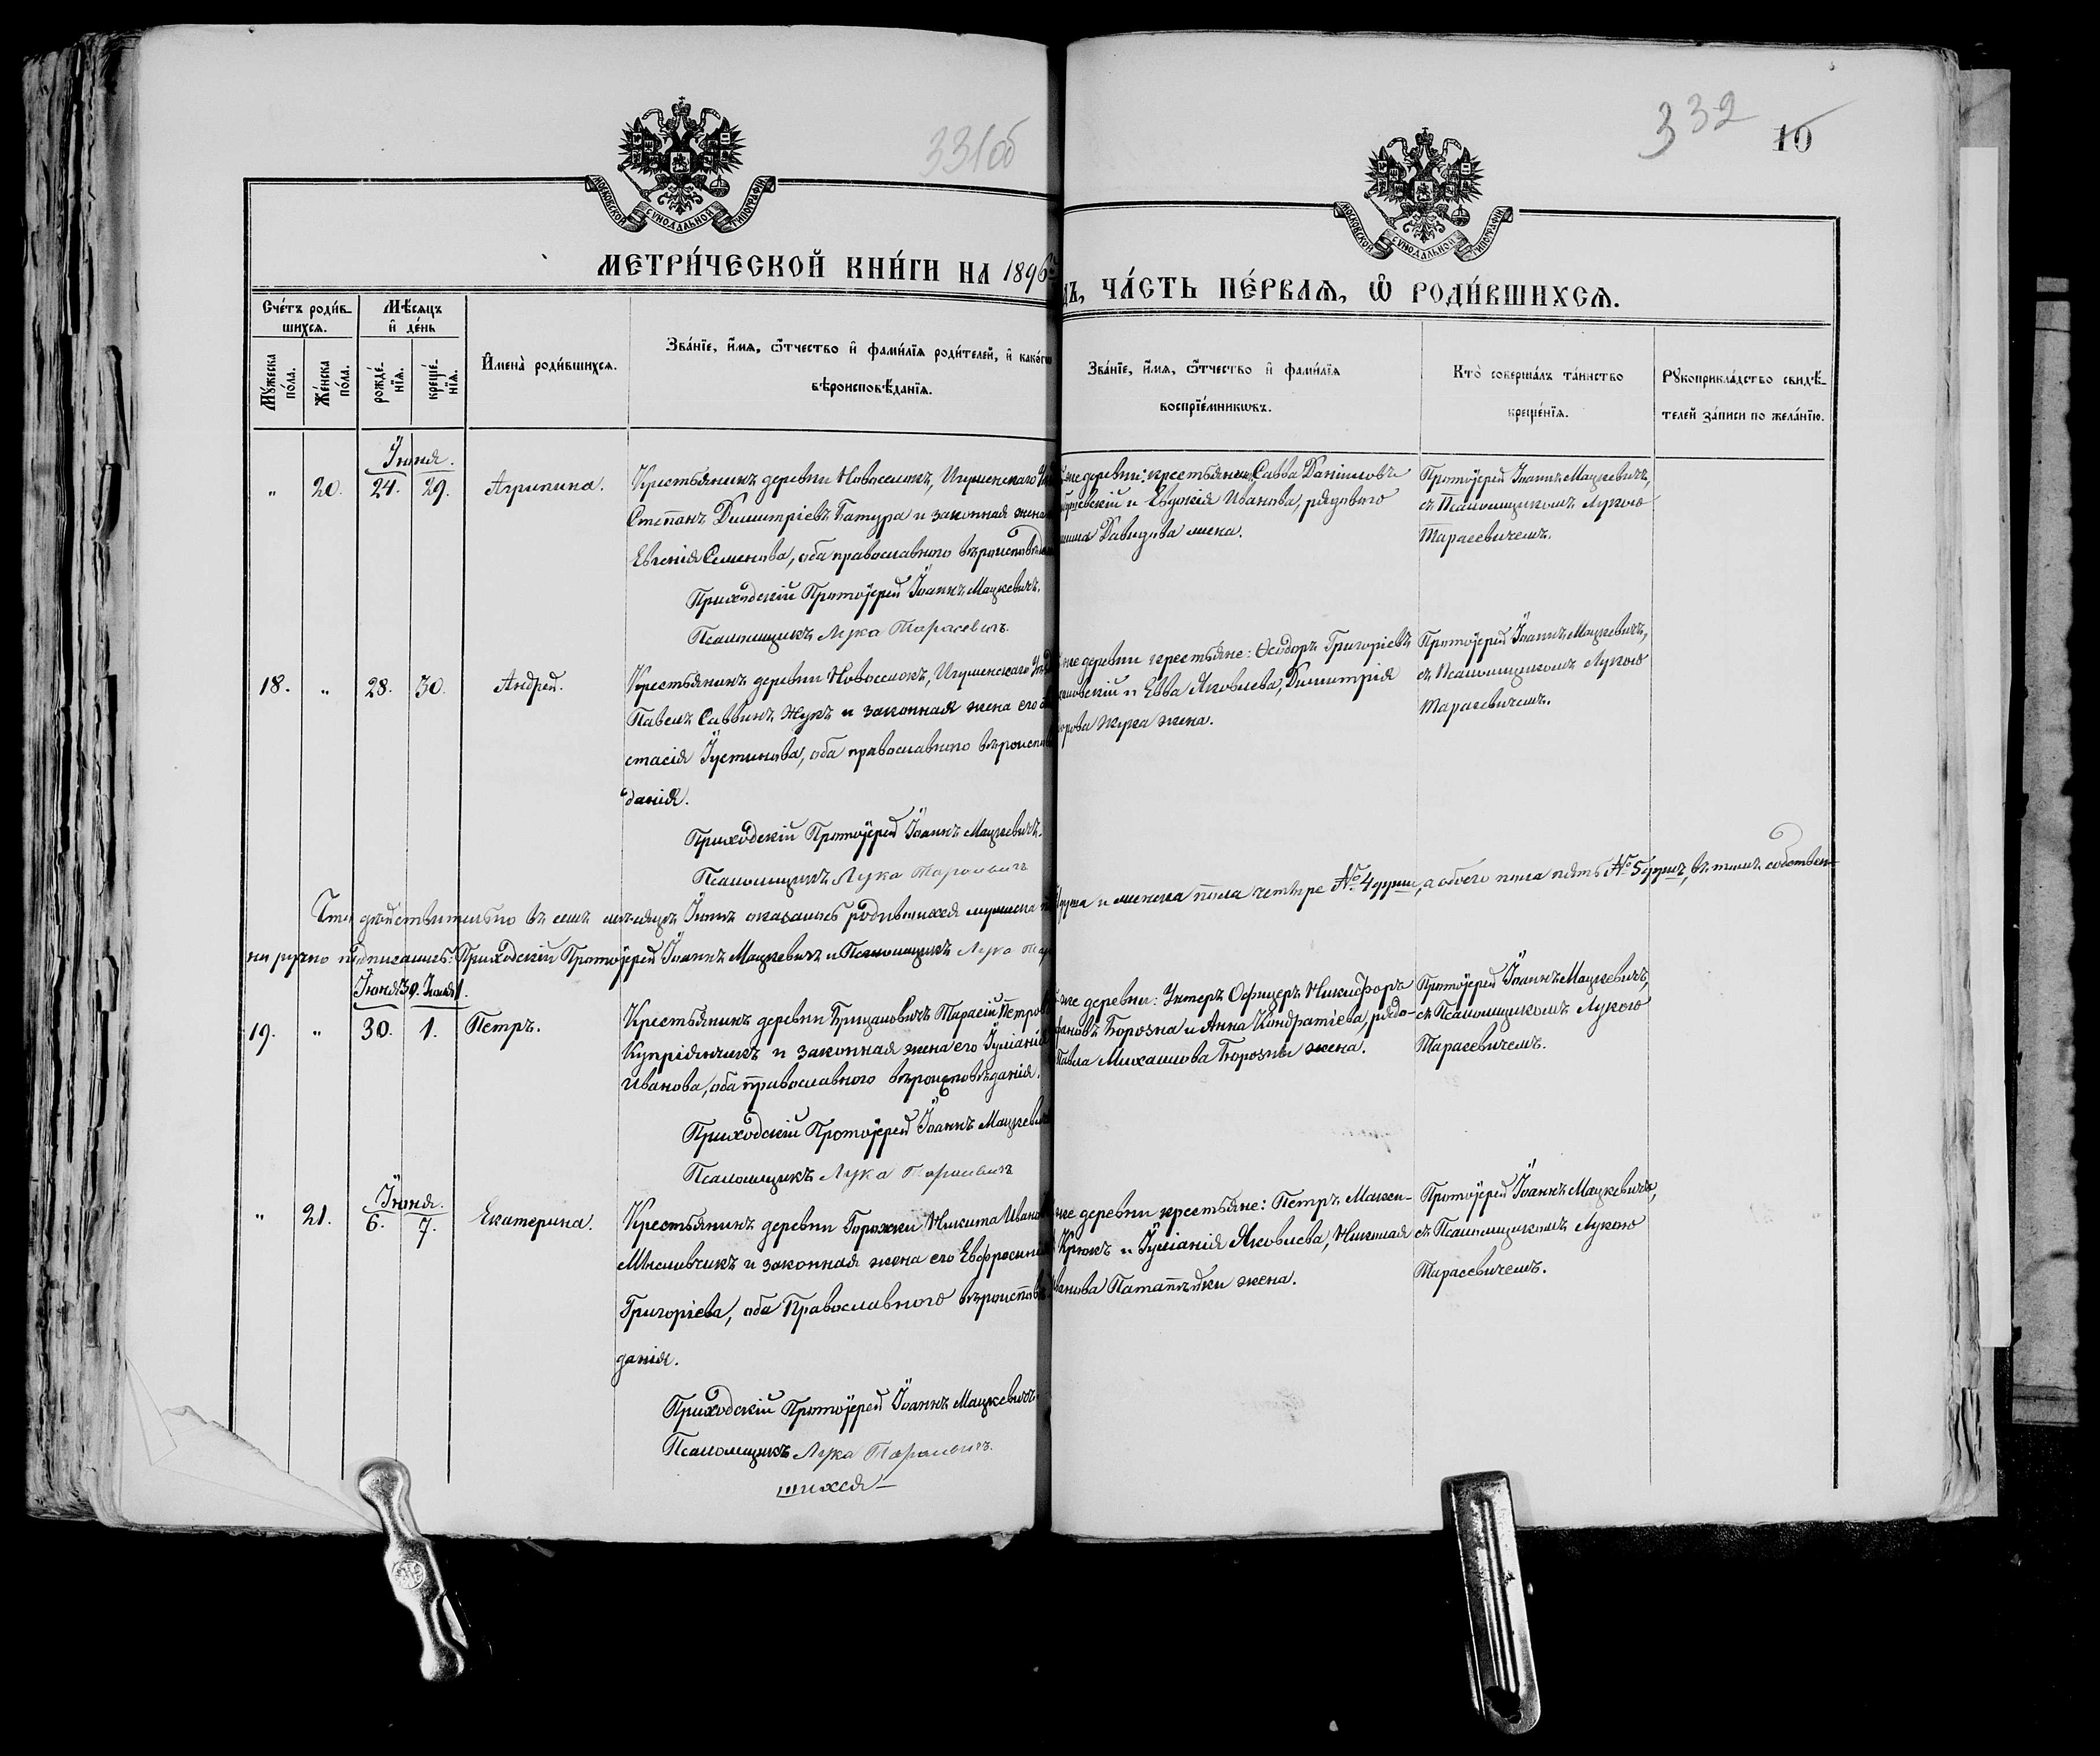 331об
332
10
МОСКОВСКОЙ СѴНОДАЛЬНОЙ ТИПОГРАФІИ
МОСКОВСКОЙ СѴНОДАЛЬНОЙ ТИПОГРАФІИ
МЕТРИ́ЧЕСКОЙ КНИ́ГИ НА 1896
ДЪ, ЧА́СТЬ ПЕ́РВАѦ, Ѡ РОДИ́ВШИХСѦ.
Сче́тъ роди́в-
шихсѧ.
Мꙋ́жеска по́ла.
Же́нска по́ла.
Мѣ́сяцъ
и де́нь
рожде́-
нїѧ.
креще́-
нїѧ.
Имена̀ роди́вшихсѧ.
Зва́нїе, и́мѧ, ѻ́тчество и фами́лїѧ роди́телей, и како́гѡ
вѣроисповѣ́данїѧ.
Зва́нїе, и́мѧ, ѻ́тчество и фами́лїѧ
воспрїе́мникѡвъ.
Кто̀ соверша́лъ та́инство
креще́нїѧ.
Рꙋкоприкла́дство свидѣ́-
телей за́писи по жела́нїю.
Іюня.
" 20. 24. 29. Агрипина.
Крестьянинъ деревни Новоселокъ, Игуменскаго
Степанъ Димитріевъ Батура и законная жена
Евгенія Семенова, оба православнаго вѣроисповѣ
Приходскій Протоіерей Іоаннъ Мацкевичъ.
Псаломщикъ Лука Тарасевичъ.
же деревни: крестьянинъ Савва Даніиловъ
и Евдокія Иванова, рядового
Давидова жена.
Протоіерей Іоаннъ Мацкевичъ,
съ Псаломщикомъ Лукою
Тарасевичемъ.
18. " 28. 30. Андрей.
Крестьянинъ деревни Новоселокъ, Игуменскаго
Павелъ Саввинъ Жукъ и законная жена его
стасія Іустинова, оба православнаго вѣроисповѣ
данія.
Приходскій Протоіерей Іоаннъ Мацкевичъ.
Псаломщикъ Лука Тарасевичъ
же деревни крестьяне: Ѳеодоръ Григоріевъ
и Евва Яковлева, Димитрія
Жука жена.
Протоіерей Іоаннъ Мацкевичъ,
съ Псаломщикомъ Лукою
Тарасевичемъ.
Что дѣйствительно въ семъ мѣсяцѣ Іюнѣ оказалось родившихся мужеска
душа и женска пола четыре № 4 души, а обоего пола пять № 5 душъ, въ томъ собствен-
норучно подписались: Приходскій Протоіерей Іоаннъ Мацкевичъ и Псаломщикъ Лука
Іюня 30. Іюля 1.
19. " 30. 1. Петръ.
Крестьянинъ деревни Грицановичъ Тарасій Петровъ
Купріянчикъ и законная жена его Іуліанія
Иванова, оба православнаго вѣроисповѣданія.
Приходскій Протоіерей Іоаннъ Мацкевичъ
Псаломщикъ Лука Тарасевичъ
же деревни: Унтеръ Офицеръ Никифоръ
Борозна и Анна Кондратіева, рядо-
Павла Михаилова Борозны жена.
Протоіерей Іоаннъ Мацкевичъ,
съ Псаломщикомъ Лукою
Тарасевичемъ.
Іюля.
" 21. 6. 7. Екатерина.
Крестьянинъ деревни Горожки Никита Ивановъ
Мысливчикъ и законная жена его Евфросинія
Григоріева, оба Православнаго вѣроисповѣ
данія.
Приходскій Протоіерей Іоаннъ Мацкевичъ.
Псаломщикъ Лука Тарасевичъ.
шихся
же деревни крестьяне: Петръ
Крюкъ и Іуліанія Яковлева, Николая
жена.
Протоіерей Іоаннъ Мацкевичъ,
съ Псаломщикомъ Лукою
Тарасевичемъ.